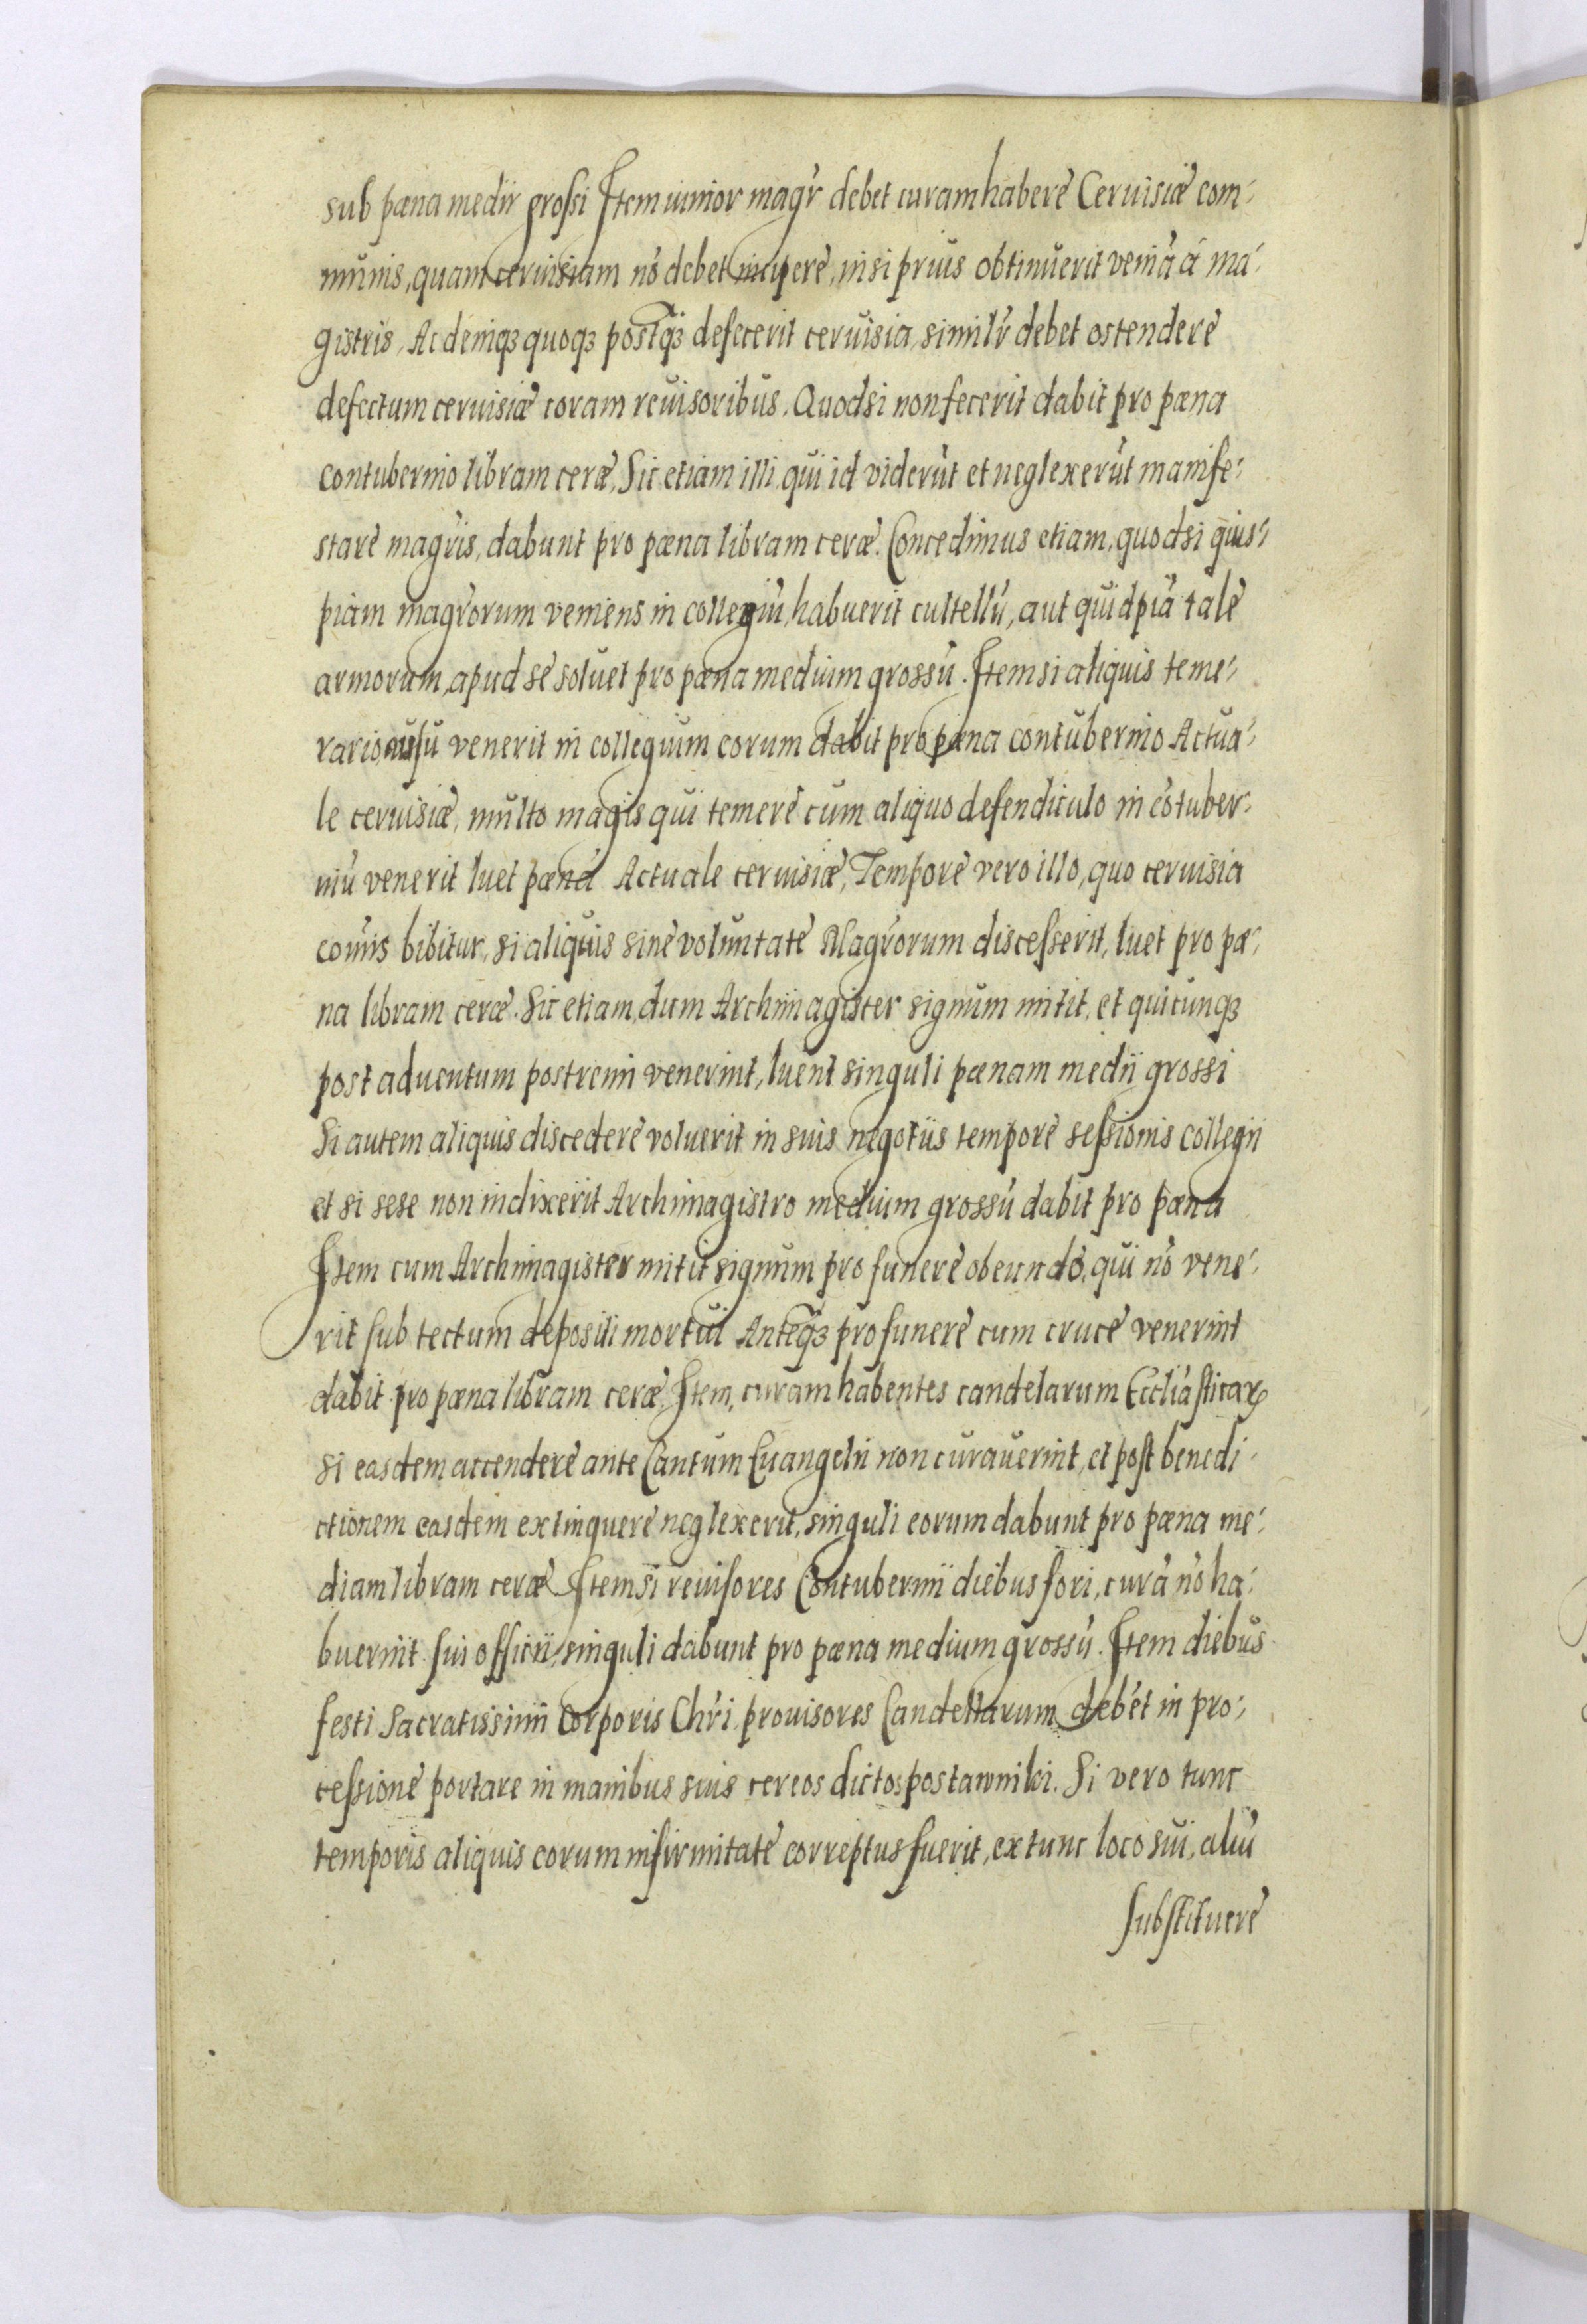 sub pæna medii grossi Item iunior magr̃ debet curam habere Ceruisiæ com-
munis, quam ceruisiam nõ debet incipere, nisi prius obtinuerit veniã à ma-
gistris, Ac deniqꝫ quoqꝫ postq̃ꝫ defecerit ceruisia, similr̃ debet ostendere
defectum ceruisiæ coram reuisoribus. Quodsi non fecerit dabit pro pæna
contubernio libram ceræ, Sic etiam illi, qui id viderũt et neglexerũt manife-
stare magr̃is, dabunt pro pæna libram ceræ. Concedimus etiam, quodsi quis-
piam magr̃orum veniens in collegiũ, habuerit cultellũ, aut quidpiã tale
armorum, apud se soluet pro pæna medium grossũ. Item si aliquis teme-
rario ausu venerit in collegium eorum dabit pro pæna contubernio Actua-
le ceruisiæ, multo magis qui temere cum aliquo defendiculo in cõtuber-
niũ venerit luet pænã Actuale ceruisiæ, Tempore vero illo, quo ceruisia
com̃is bibitur, si aliquis sine voluntate Magr̃orum discesserit, luet pro pæ-
na libram ceræ. Sic etiam, dum Archimagister signum mitit, et quicunqꝫ
post aduentum postremi venerint, luent singuli pænam medii grossi
Si autem aliquis discedere voluerit in suis negotiis tempore sessionis collegii
et si sese non indixerit Archimagistro medium grossũ dabit pro pæna
Item cum Archimagister mitit signum pro funere obeundo, qui nõ vene-
rit sub tectum depositi mortui Anteq̃ꝫ pro funere cum cruce venerint
dabit pro pæna libram ceræ. Item, curam habentes candelarum Eccliãsticaꝝ
si easdem accendere ante Cantum Euangelii non curauerint, et post benedi-
ctionem easdem extinquere neglexerit, singuli eorum dabunt pro pæna me-
diam libram ceræ Item si reuisores Contubernii diebus fori, curã nõ ha-
buerint sui officii, singuli dabunt pro pæna medium grossũ. Item diebus
festi Sacratissimi Corporis Chr̃i prouisores Candellarum debẽt in pro-
cessione portare in manibus suis cereos dictos postawniki. Si vero tunc
temporis aliquis eorum infirmitate correptus fuerit, ex tunc loco sui, aliũ
substituere